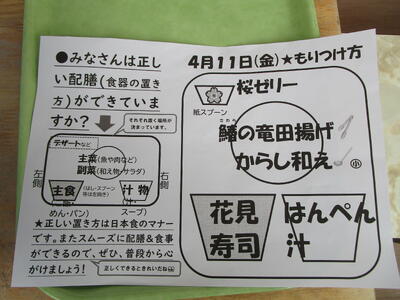 ●みなさんは正し
い配膳(食器の置き
方)ができていま
すか?
それぞれ置く場所が
決まっています。
デザートなど
主菜(魚や肉など)
副菜(和え物・サラダ)
左側
右側
主食
(はし・スプーン
等は左向き)
汁物
めん・パン)
スープ)
★正しい置き方は日本食のマナー
です。またスムーズに配膳&食事
ができるので、ぜひ、普段から心
がけましょう!
正しくできるときれいだね
4月11日(金)★もりつけ方
桜ゼリー
紙スプーン
さわら
鰆の竜田揚げ
からし和え
小
花見
寿司
はんぺん
汁